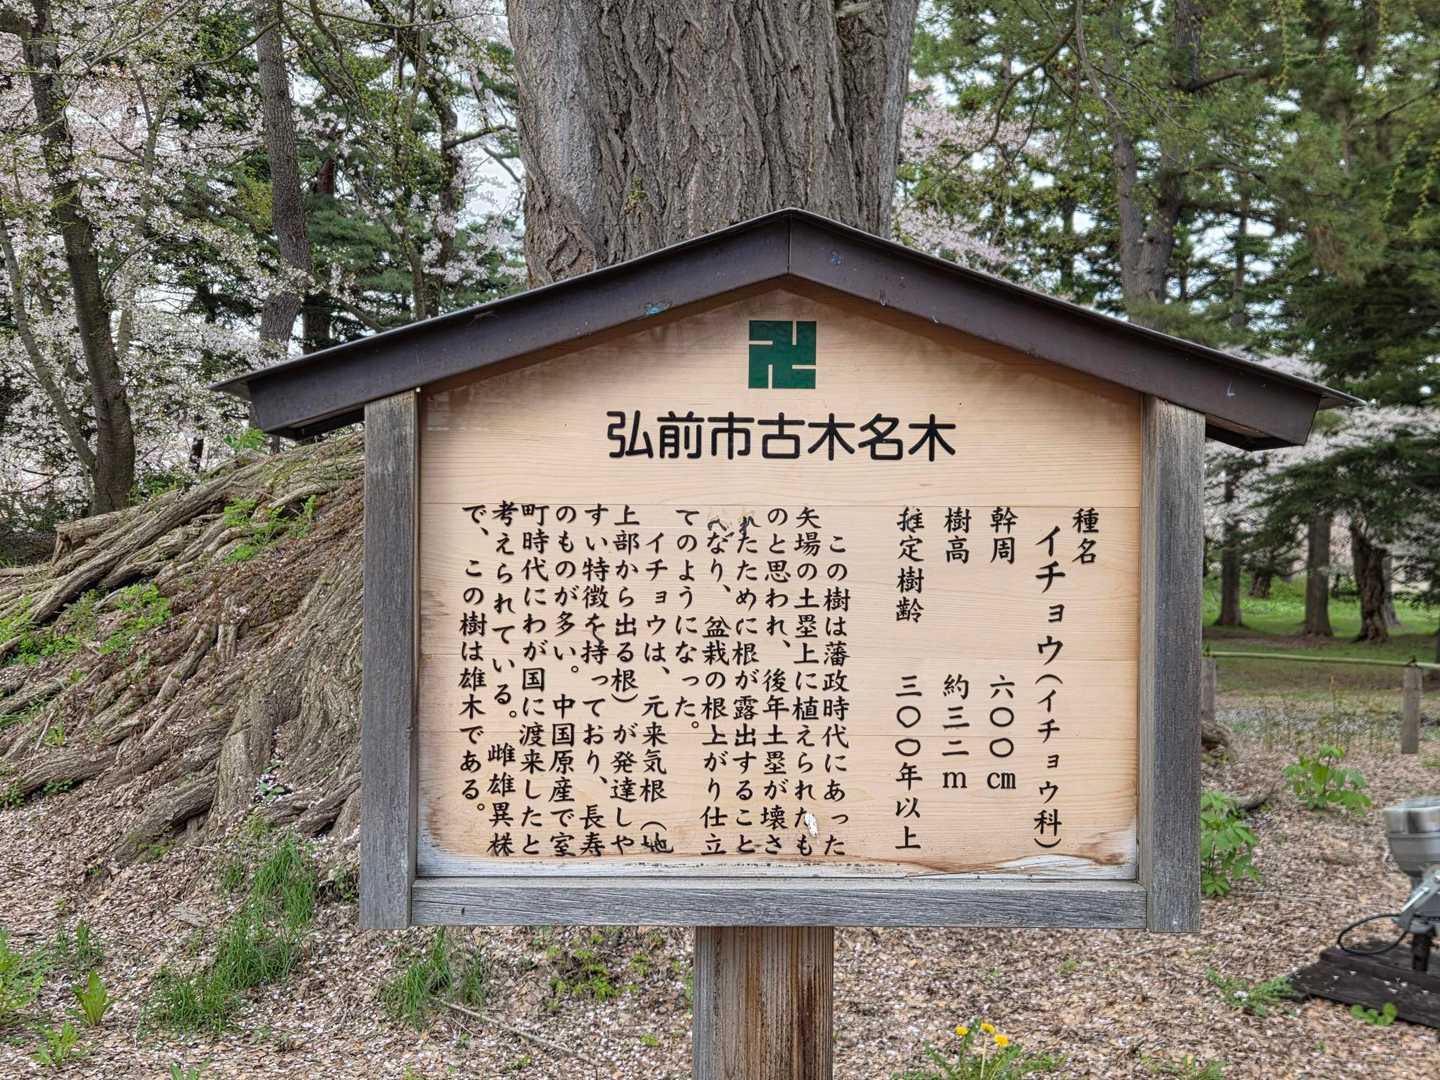 卍
弘前市古木名木
種名
イチョウ(イチョウ科)
幹周 六〇〇㎝
樹高 約三二m
推定樹齢 三〇〇年以上
この樹は藩政時代にあった
矢場の土塁上に植えられたも
のと思われ、後年土塁が壊さ
れたために根が露出すること
になり、盆栽の根上がり仕立
てのようになった。
イチョウは、元来気根(地
上部から出る根)が発達しや
すい特徴を持っており、長寿
のものが多い。中国原産で室
町時代にわが国に渡来したと
考えられている。雌雄異株
で、この樹は雄木である。